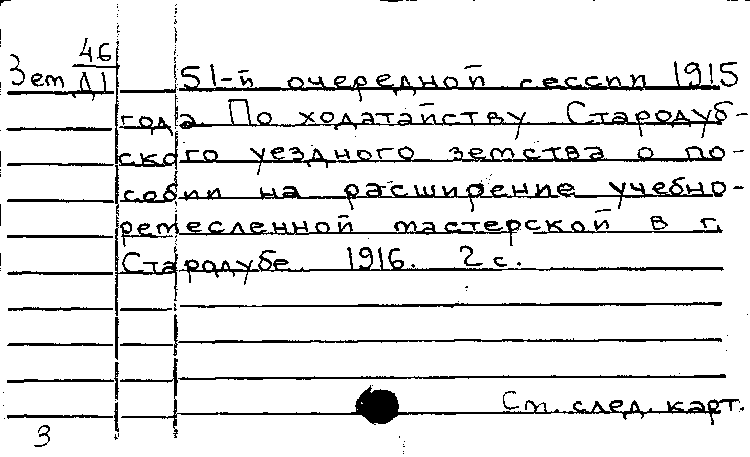 46
Зем Д1 51-й очередной сессии 1915
года. По ходатайству Стародуб-
ского уездного земства о по-
собии на расширение учебно-
ремесленной мастерской в г.
Стародубе. 1916. 2 с.
См. след. карт.
3